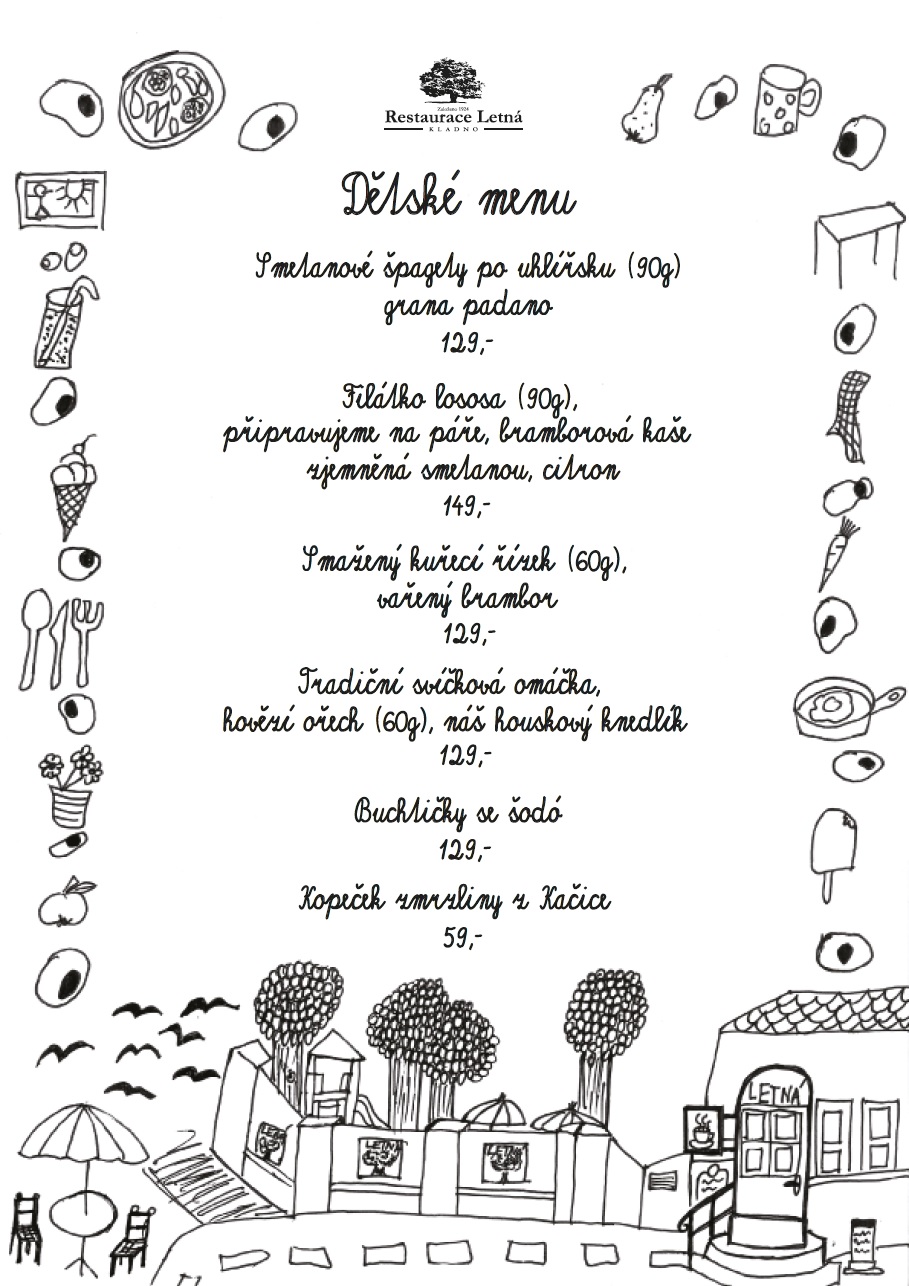 Založeno 1924
Restaurace Letná
KLADNO
Dětské menu
Smetanové špagety po uhlířsku (90g)
grana padano
129,-
Filátko lososa (90g),
připravujeme na páře, bramborová kaše
zjemněná smetanou, citron
149,-
Smažený kuřecí řízek (60g),
vařený brambor
129,-
Tradiční svíčková omáčka,
hovězí ořech (60g), náš houskový knedlík
129,-
Buchtičky se šodó
129,-
Kopeček zmrzliny z Kačice
59,-
LETNÁ
LETNÁ
LETNÁ
LETNÁ